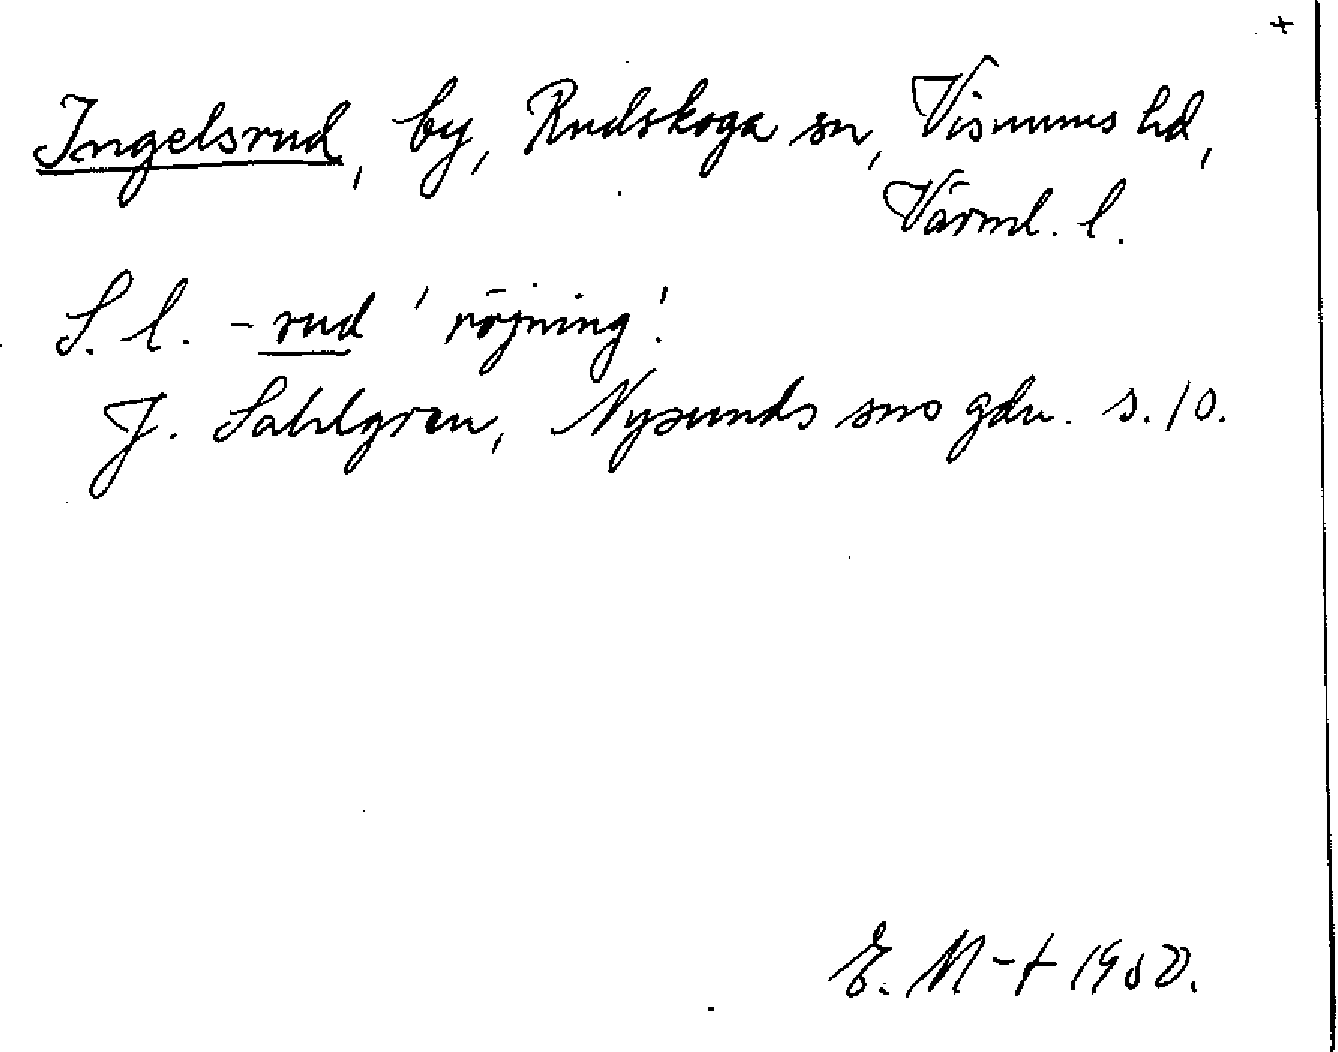 +
Ingelsrud, by, Rudskoga sn, Visnums hd,
Värml. l.
S. l. -rud 'röjning'.
J. Sahlgren, Nysunds sns gdn. s. 10.
E. M-t 1950.